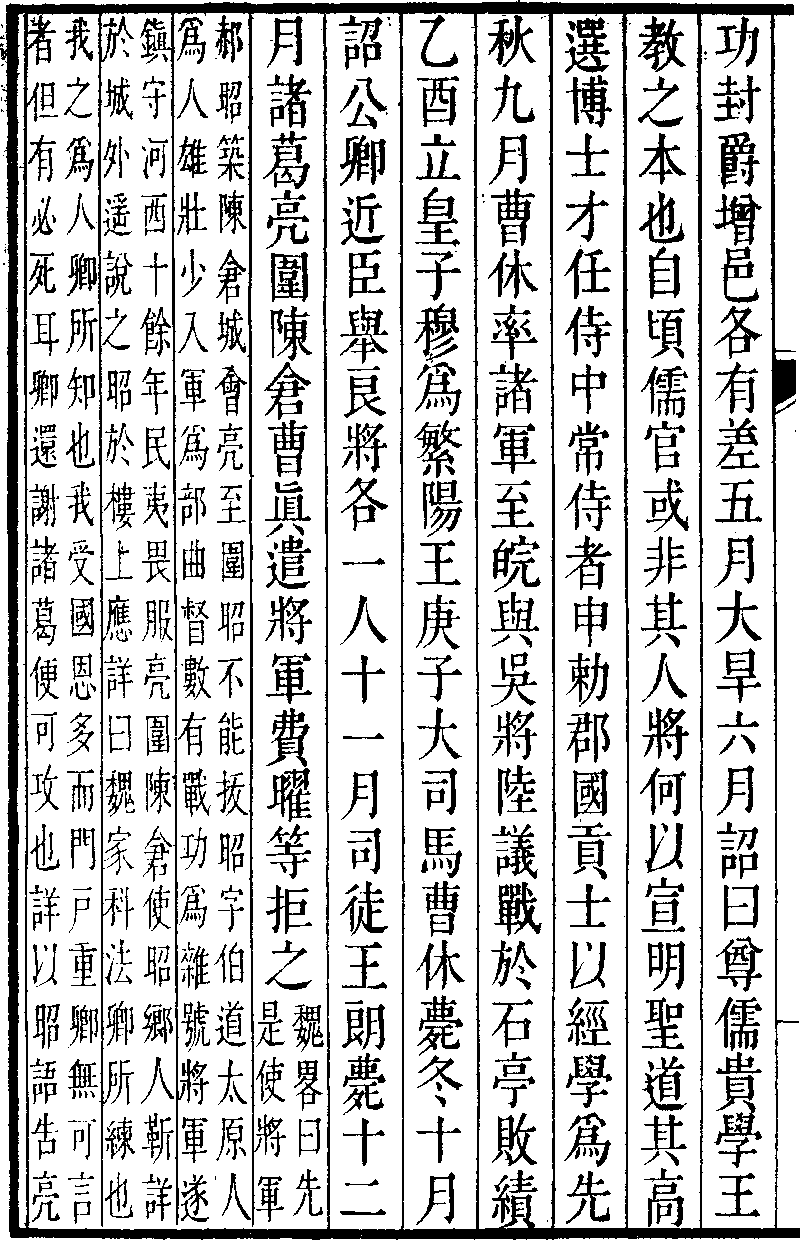 功封爵增邑各有差五月大旱六月詔曰尊儒貴學王
教之本也自頃儒官或非其人將何以宣明聖道其高
選博士才任侍中常侍者申勅郡國貢士以經學爲先
秋九月曹休率諸軍至皖與吳將陸議戰於石亭敗績
乙酉立皇子穆爲繁陽王庚子大司馬曹休薨冬十月
詔公卿近臣舉良將各一人十一月司徒王朗薨十二
月諸葛亮圍陳倉曹眞遣將軍費曜等拒之
魏畧曰先
是使將軍
郝昭築陳倉城會亮至圍昭不能拔昭字伯道太原人
爲人雄壯少入軍爲部曲督數有戰功爲雜號將軍遂
鎮守河西十餘年民夷畏服亮圍陳倉使昭鄉人靳詳
於城外遥說之昭於樓上應詳曰魏家科法卿所練也
我之爲人卿所知也我受國恩多而門戸重卿無可言
者但有必死耳卿還謝諸葛便可攻也詳以昭語告亮